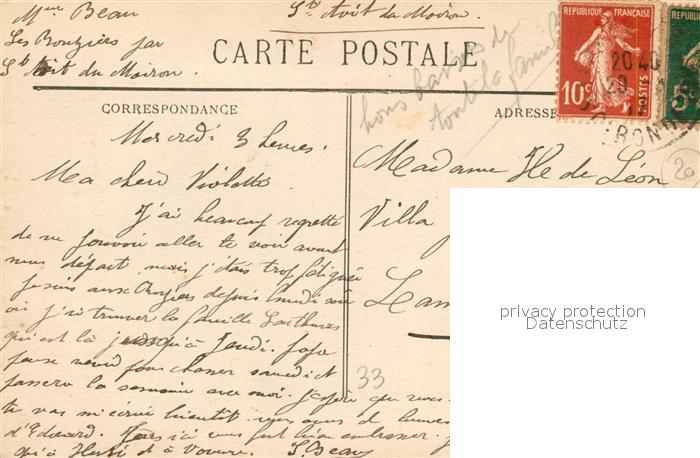 Mme Beau
Les Rouziers par
St
du Moiron
St Avit du Moiron.
CARTE POSTALE
RÉPUBLIQUE FRANÇAISE
10c POSTES
5c
20 40
20
GIRONDE
CORRESPONDANCE
ADRESSE
bons baisers de
toute la famille
20
Mercredi 3 heures.
Ma chère Violette
J'ai beaucoup regretté
de ne pouvoir aller te voir avant
mon départ mais j'étais trop fatiguée
je suis aux Rouziers depuis lundi soir
où j'ai trouver la famille
qui est là jusqu'à Jeudi.
pense venir pour chasser samedi et
passera la semaine avec moi. J'espère que
tu vas m'écrire bientôt
d'Edouard. Tous ici vous font bien embrasser
qu'à Henri et à S. Beau
Madame H. de Léon
Villa
33
privacy protection
Datenschutz